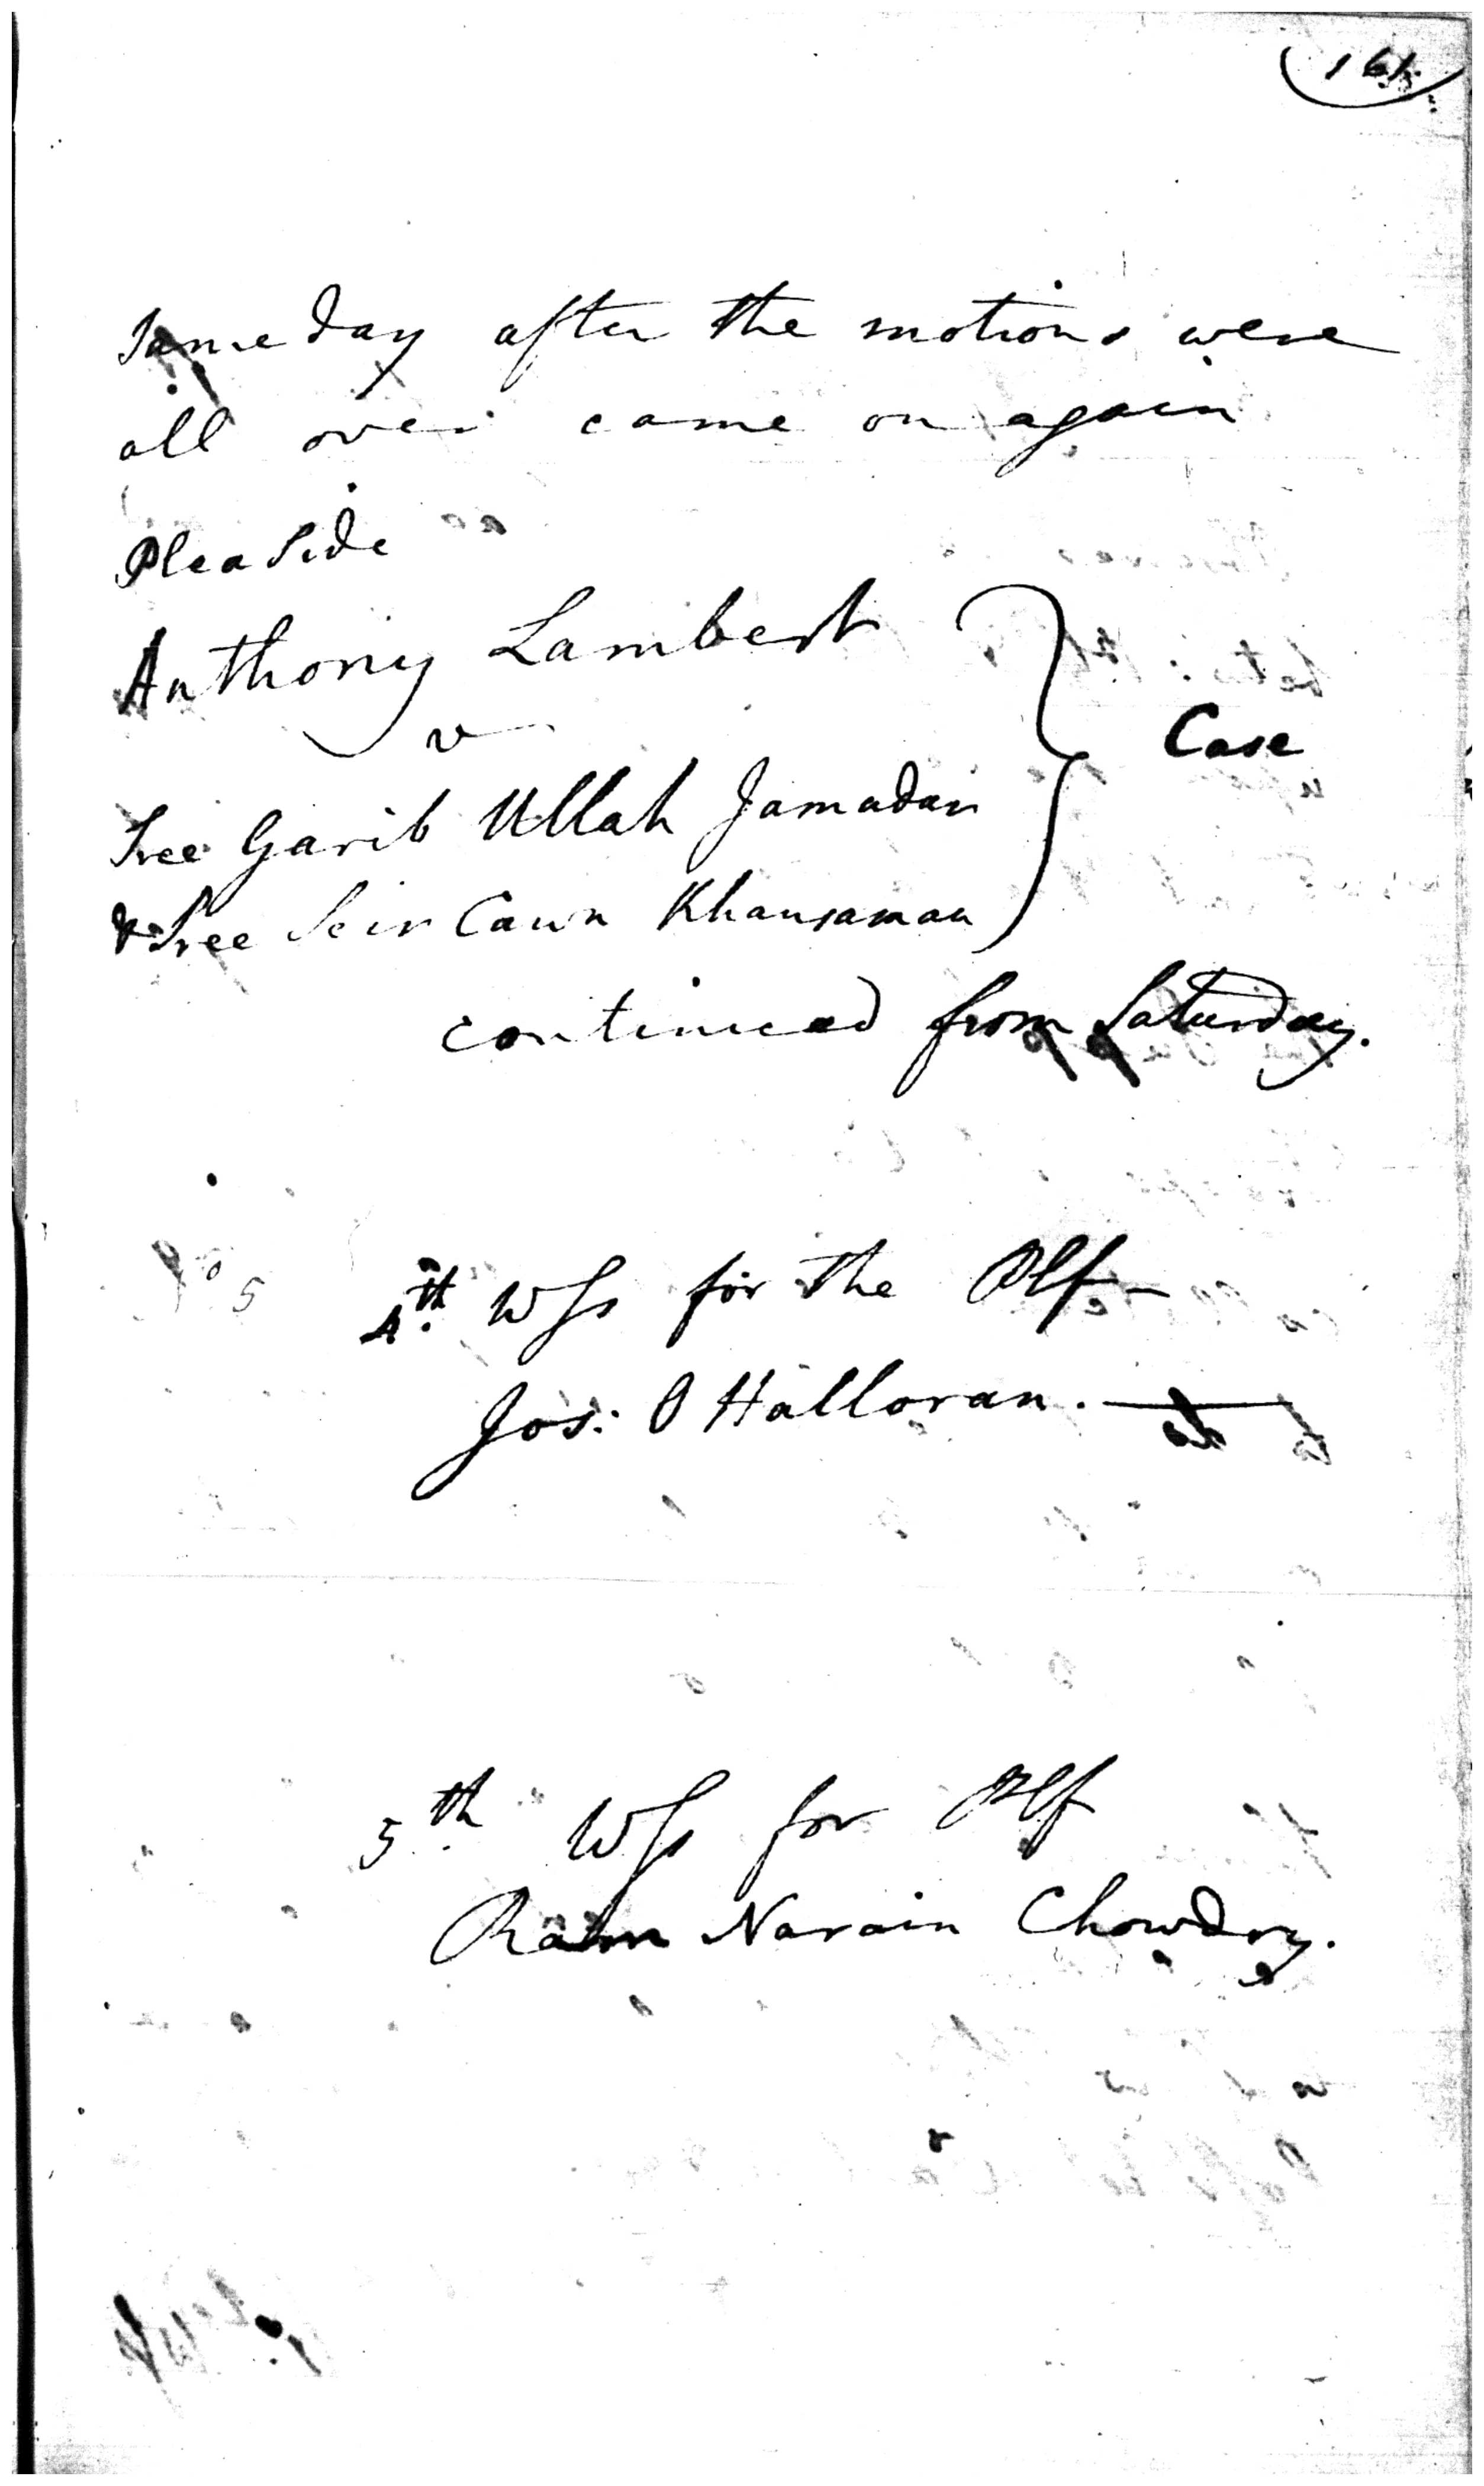 161.
Same day after the motions were
all over came on again
Plea Side
Anthony Lambert
v
Case
Sree Garib Ullah Jamadar
& Sree Seir Cawn Khansaman
continued from Saturday.
4th Wss for the Plf
Jos: O Halloran.
5th Wss for Plf
Ram Narain Chowdry.